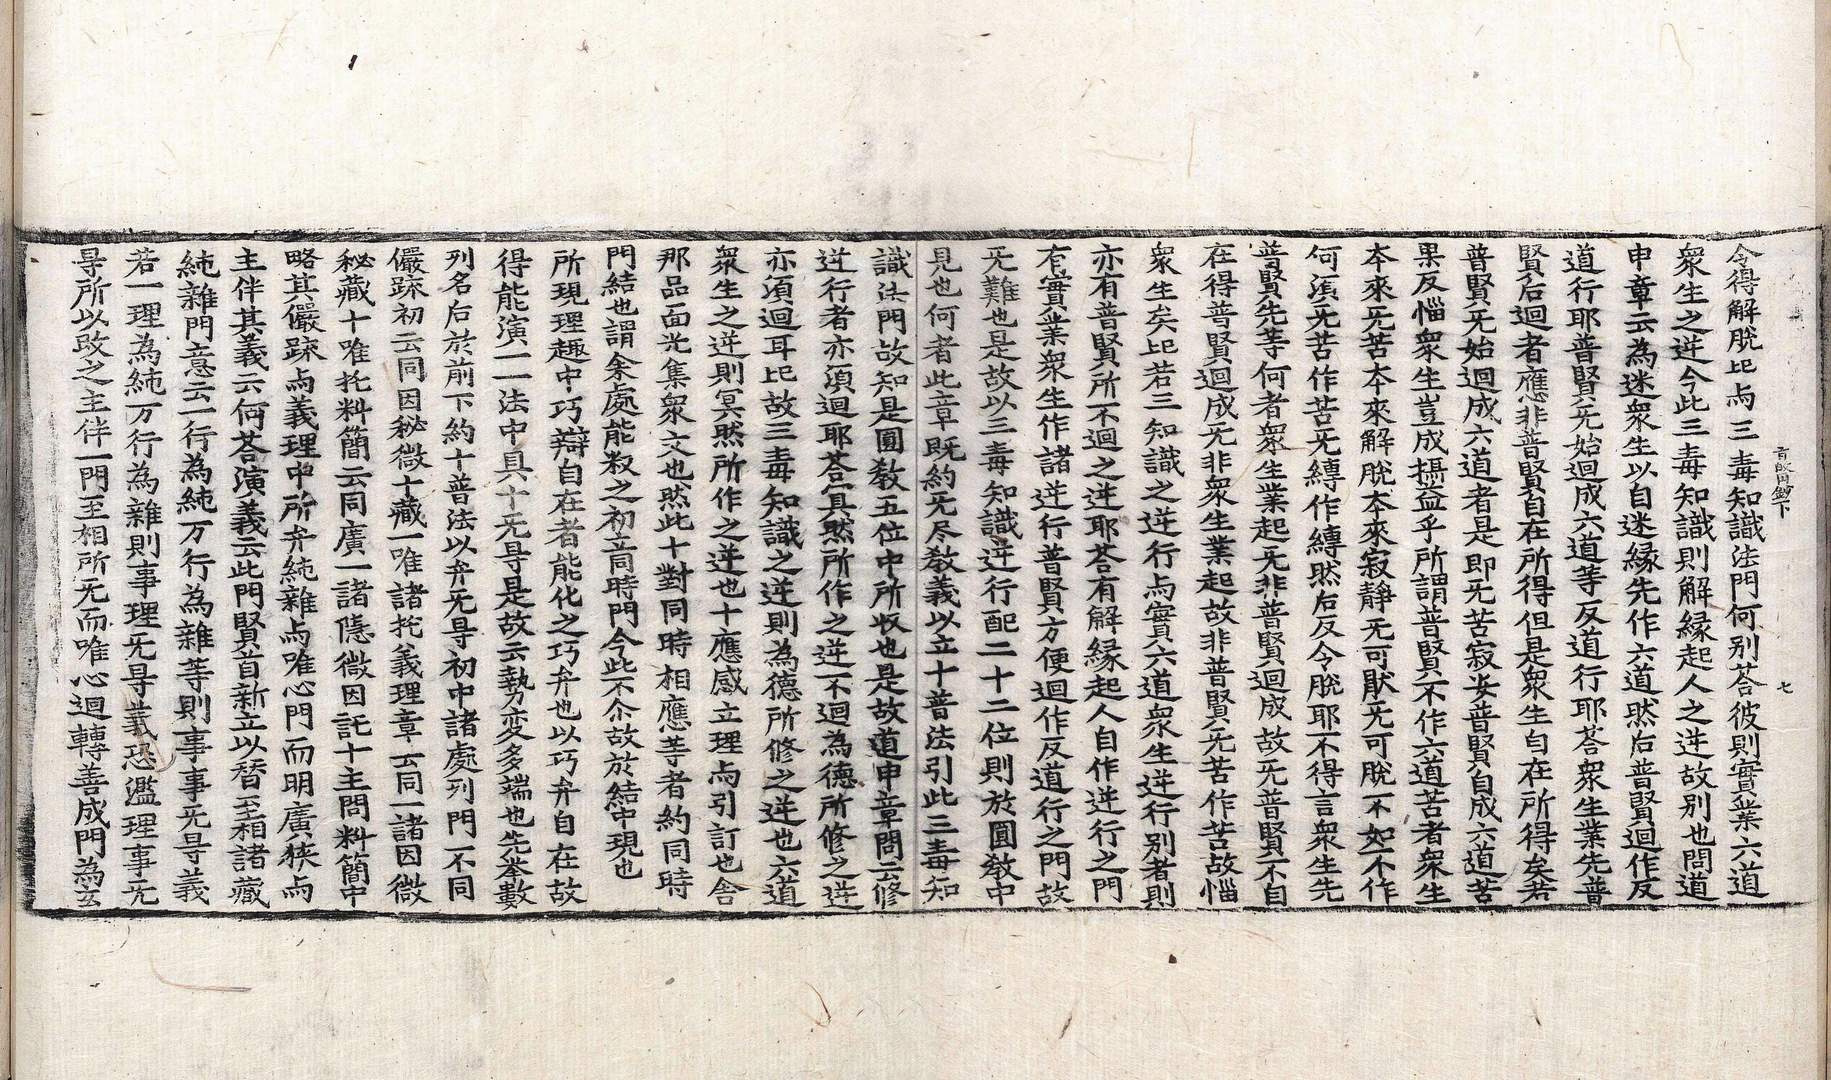 旨歸章圓通鈔下　七
令得解脫比与三毒知識法門何別荅彼則實業六道
衆生之逆今此三毒知識則解縁起人之逆故別也問道
申章云為迷衆生以自迷縁先作六道然后普賢迴作反
道行耶普賢无始迴成六道等反道行耶荅衆生業先普
賢后迴者應非普賢自在所得但是衆生自在所得矣若
普賢无始迴成六道者是即无苦寂安普賢自成六道苦
果反惱衆生豈成攝益乎所謂普賢不作六道苦者衆生
本來无苦本來解脫本來寂靜无可猒无可脫一不如不作
何湏无苦作苦无縛作縛然后反令脫耶不得言衆生先
普賢先等何者衆生業起无非普賢迴成故无普賢不自
在得普賢迴成无非衆生業起故非普賢无苦作苦故惱
衆生矣比若三知識之逆行与實六道衆生逆行別者則
亦有普賢所不迴之逆耶荅有解縁起人自作逆行之門
有實業衆生作諸逆行普賢方便迴作反道行之門故
无難也是故以三毒知識逆行配二十二位則於圓教中
見也何者此章既約无尽教義以立十普法引此三毒知
識法門故知是圓教五位中所収也是故道申章問云修
逆行者亦湏迴耶荅冥然所作之逆不迴為德所修之逆
亦湏迴耳比故三毒知識之逆則為德所修之逆也六道
衆生之逆則冥然所作之逆也十應感立理与引訂也舍
那品面光集衆文也然此十對同時相應等者約同時
門結也謂余處能叙之初立同時門今此不尒故於結中現也
所現理趣中巧辯自在者能化之巧弁也以巧弁自在故
得能演一一法中具十无㝵是故云勢変多端也先牟數
列名后於前下約十普法以弁无㝵初中諸處列門不同
儼䟽初云同因秘微十藏一唯諸托義理章云同一諸因微
秘藏十唯托料簡云同廣一諸隱微因託十主問料簡中
略其儼䟽与義理中所弁純雜与唯心門而明廣狹与
主伴其義云何荅演義云此門賢首新立以替至相諸藏
純雜門意云一行為純万行為雜等則事事无㝵義
若一理為純万行為雜則事理无㝵義恐濫理事无
㝵所以改之主伴一門至相所无而唯心迴轉善成門為玄